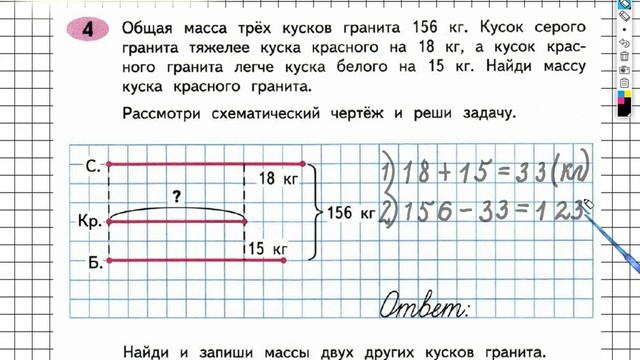 4
Общая масса трёх кусков гранита 156 кг. Кусок серого
гранита тяжелее куска красного на 18 кг, а кусок крас-
ного гранита легче куска белого на 15 кг. Найди массу
куска красного гранита.
Рассмотри схематический чертёж и реши задачу.
С.
18 кг
?
Кр.
156 кг
15 кг
Б.
1) 18 + 15 = 33 (кг)
2) 156 - 33 = 123
Ответ:
Найди и запиши массы двух других кусков гранита.